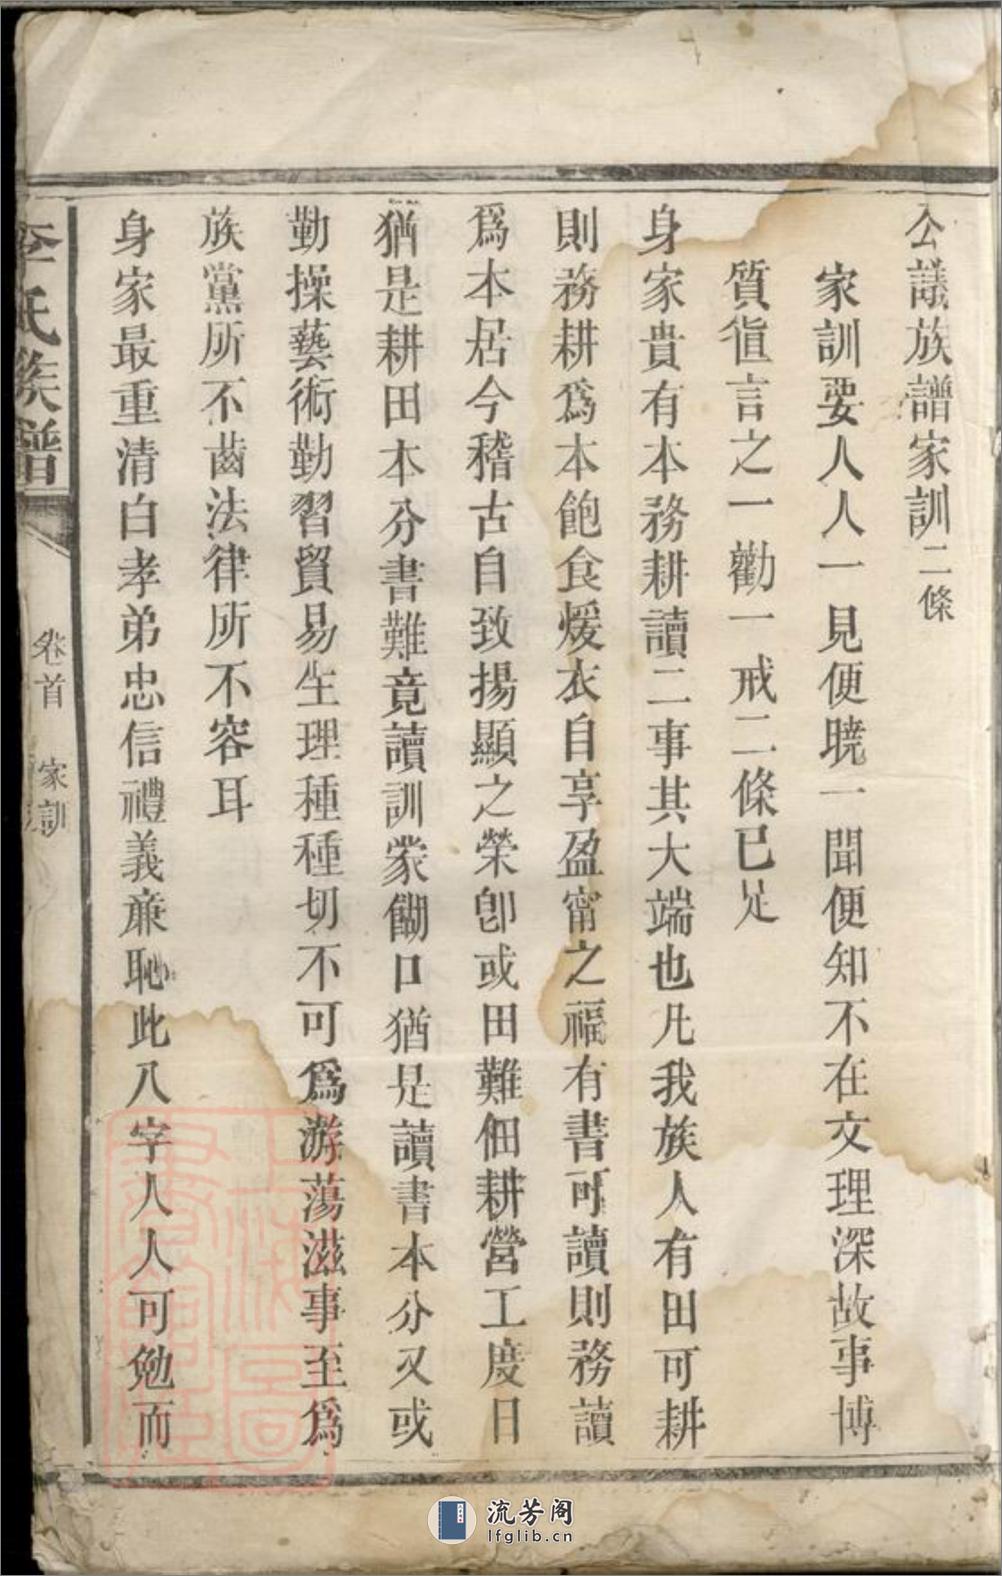 公議族譜家訓二條
家訓要人人一見便曉一聞便知不在文理深故事博
質直言之一勸一戒二條已足
身家貴有本務耕讀二事其大端也凡我族人有田可耕
則務耕爲本飽食煖衣自享盈甯之福有書可讀則務讀
爲本居今稽古自致揚顯之榮卽或田難佃耕營工度日
猶是耕田本分書難竟讀訓蒙餬口猶是讀書本分又或
勤操藝術勤習貿易生理種種切不可爲游蕩滋事至爲
族黨所不齒法律所不容耳
身家最重清白孝弟忠信禮義亷恥此八字人人可勉而
李氏族譜
卷首 家訓
流芳阁
lfglib.cn